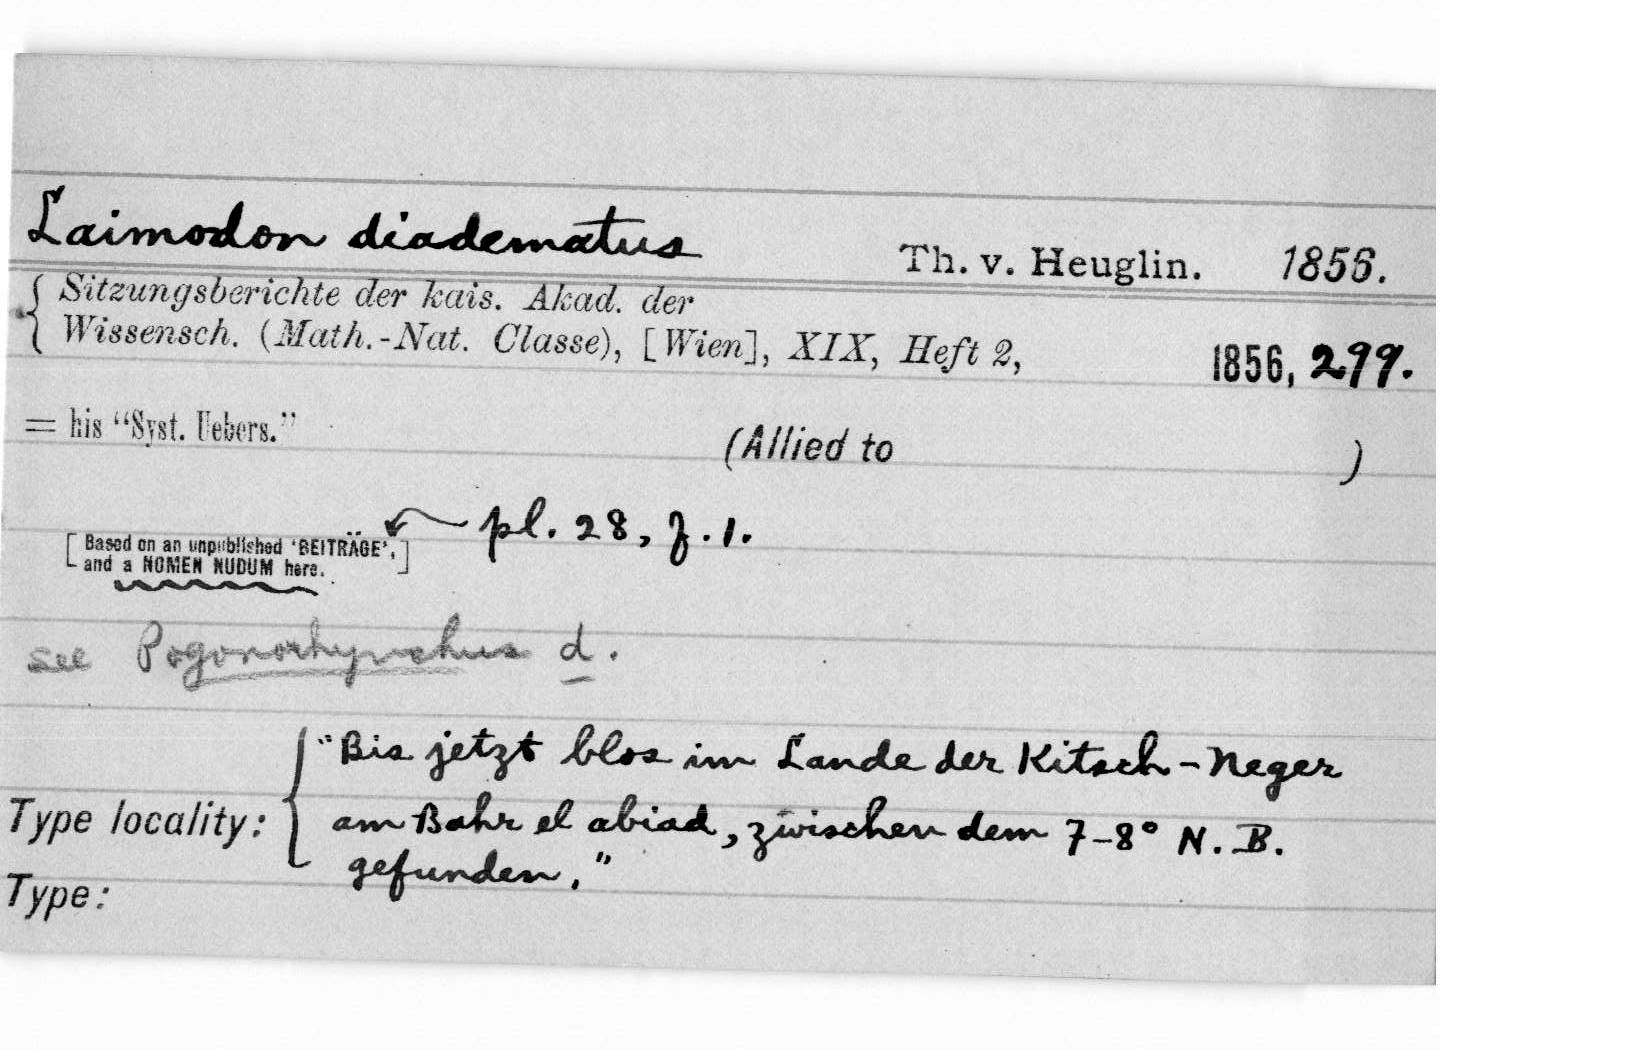 Laimodon diadematus Th. v. Heuglin. 1856.
Sitzungsberichte der kais. Akad. der
Wissensch. (Math.-Nat. Classe), [Wien], XIX, Heft 2, 1856, 299.
= his “Syst. Uebers.”
(Allied to )
pl. 28, f. 1.
[Based on an unpublished ‘BEITRÄGE’,
and a NOMEN NUDUM here.]
see Pogonorhynchus d.
"Bis jetzt blos im Lande der Kitsch-Neger
Type locality: am Bahr el abiad, zwischen dem 7-8° N. B.
gefunden."
Type: